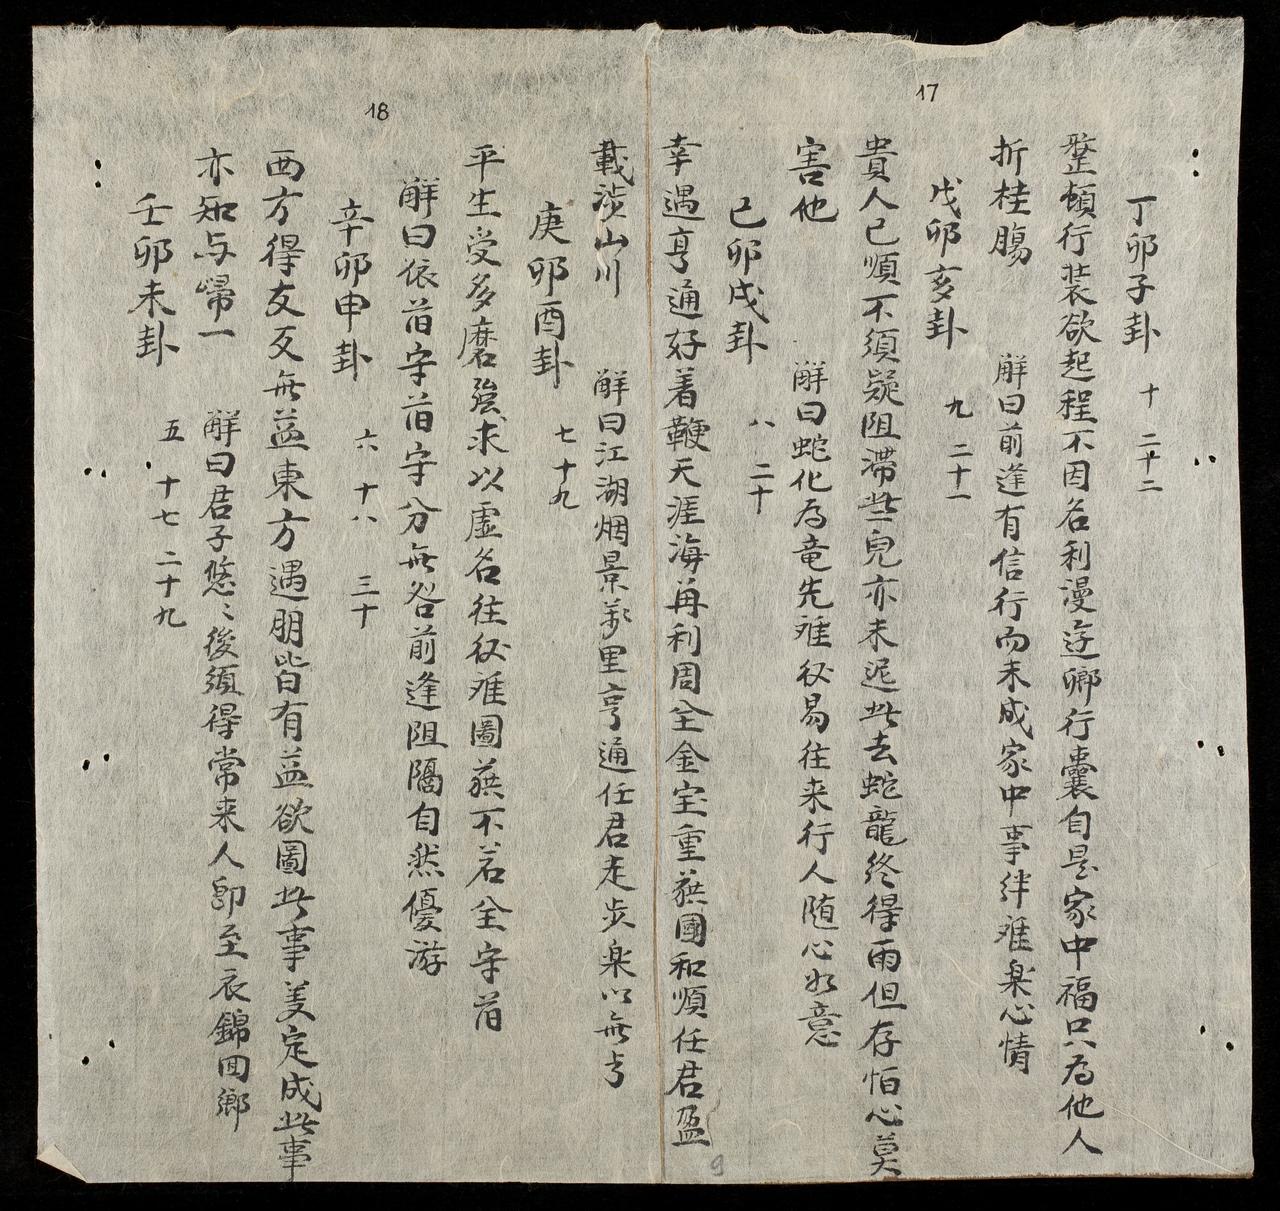 17
丁卯子卦 十 二十二
整頓行装欲起程不因名利漫迯鄉行囊自是家中福只為他人
折桂腸 解曰前逢有信行而未成家中事絆难楽心情
戊卯亥卦 九 二十一
貴人已順不須疑阻滯些兒亦未迟此去蛇龍终得雨但存怕心莫
害他 解曰蛇化為竜先难後易往来行人随心如意
己卯戌卦 八 二十
幸遇亨通好着鞭天涯海再利周全金宝重蕻國和順任君盈
載涉山川 解曰江湖烟景萬里亨通任君走步楽以無亏
18
庚卯酉卦 七 十九
平生受多磨強求以虚名往後难圖蕻不若全字首
解曰依首字首字分無咎前逢阻隔自然優游
辛卯申卦 六 十八 三十
西方得友反無益東方遇朋皆有益欲圖此事美定成此事
亦知与帰一 解曰君子悠〻後須得常来人即至衣錦回鄉
壬卯未卦 五 十七 二十九
9